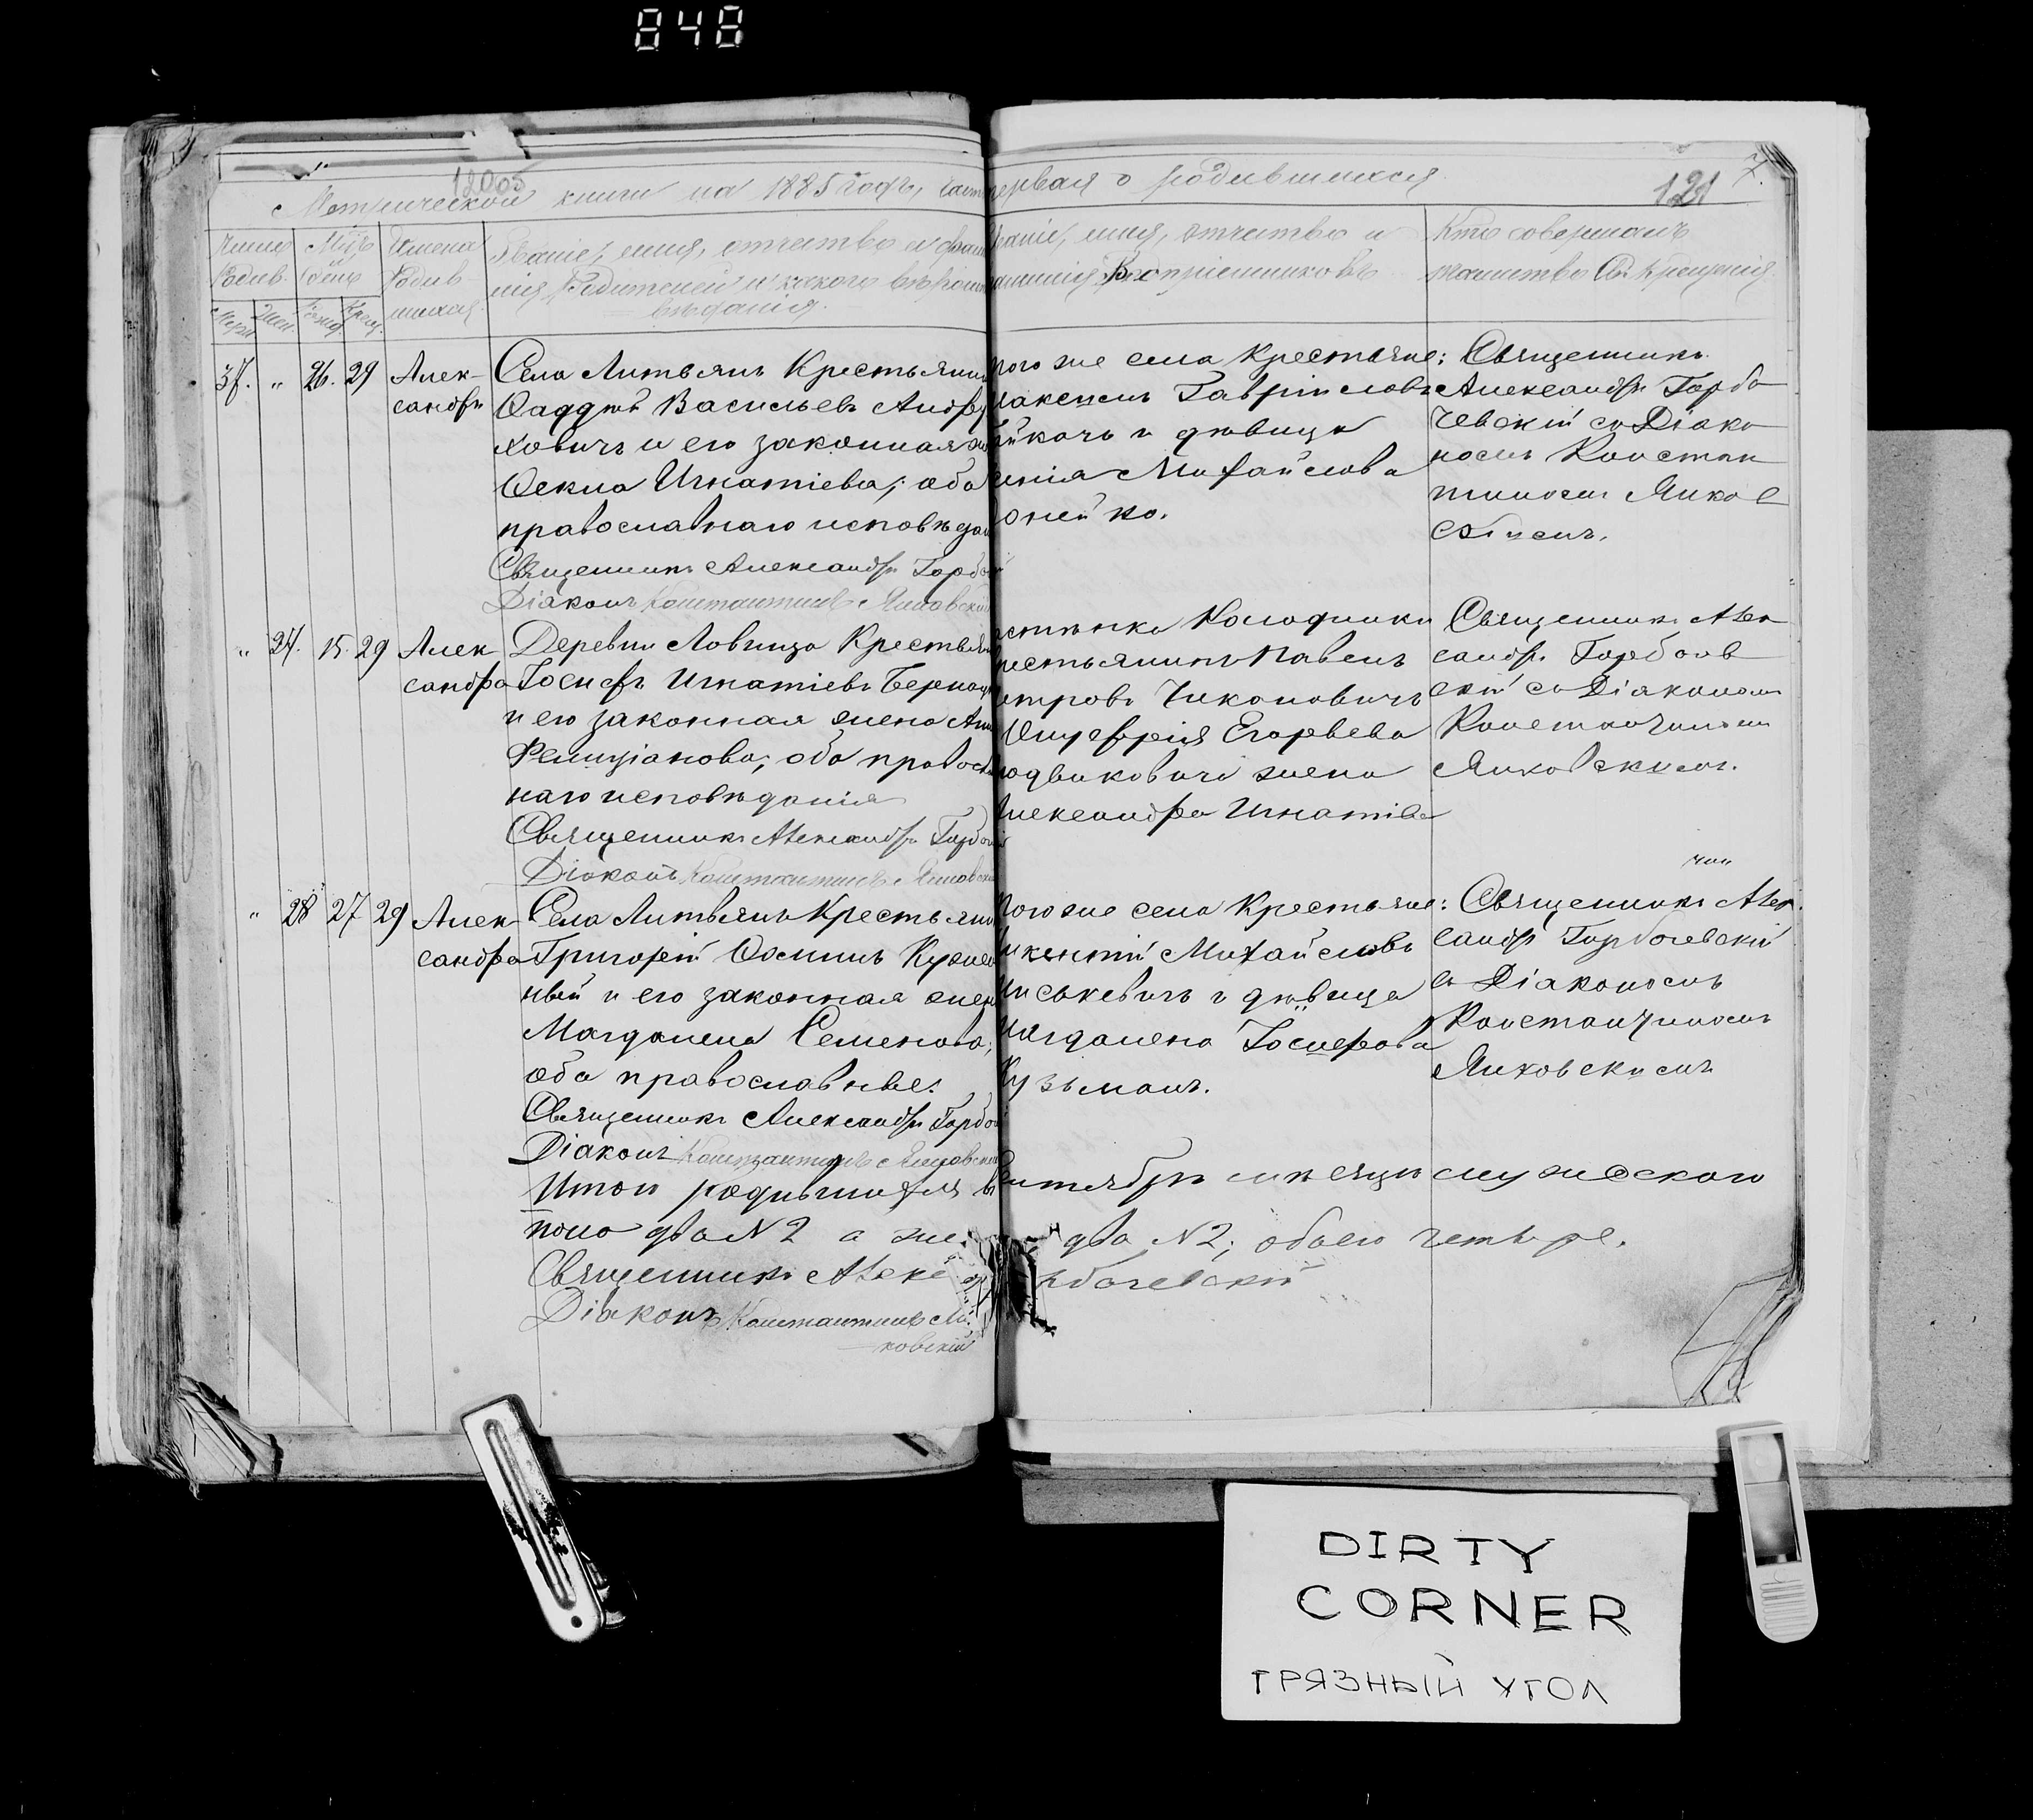 848
12005
Метрической книги на 1885 годъ, часть первая о родившихся
121
7.
Число Родив.
Мцъ и день
Имена Родив-шихся
Званіе, имя, отчество и фами-
лія Родителей и какого вѣроис-
вѣданія.
Званіе, имя, отчество и
фамилія Воспріемниковъ
Кто совершалъ
таинство Св. Крещенія
37. " 26. 29
Алек-
сандръ
Села Литвянъ Крестьянинъ
Фаддѣй Васильевъ Андру
ховичъ и его законная же
Фекла Игнатіева; оба
православнаго исповѣдан
Священникъ Александръ Горбач
Діаконъ Константинъ Янковскій
того же села Крестьяне:
Максимъ Гавріиловъ
и дѣвица
Михайлова
Священникъ
Александръ Горба
чевскій съ Діако
номъ Констан
тиномъ Янков
скимъ.
" 27. 15. 29
Алек
сандра
Деревни Ловища Крестьян
Іосифъ Игнатіевъ Бернац
и его законная жена Анна
Фелиціанова; оба правосл
наго исповѣданія
Священникъ Александръ Горбач
Діаконъ Константинъ Янковскі
Колодники
рестьянинъ Павелъ
етровъ Чиконовичъ
Онуфрія Егорьева
жена
Александра Игнатіева
Священникъ Алек
сандръ Горбачев
скій съ Діакономъ
Константиномъ
Янковскимъ.
" 28 27 29
Алек-
сандра
Села Литвянъ Крестьянинъ
Григорій Осиповъ Кузмен
ный и его законная жена
Магдалена Семенова;
оба православные.
Священникъ Александръ Горбач
Діаконъ Константинъ Янковскій
того же села Крестьяне:
икентій Михайловъ
иськевичъ и дѣвица
Магдалена Іосифова
Кузьмичъ.
Священникъ Алек
сандръ Горбачевскій
съ Діакономъ
Константиномъ
Янковскимъ
Итого родившихся въ Сентябрѣ мѣсяцѣ мужескаго
пола два №2 а жен два №2; обоего четыре.
Священникъ Алекс Горбачевскій
Діаконъ Константинъ Ян
ковскій
DIRTY
CORNER
ГРЯЗНЫЙ УГОЛ